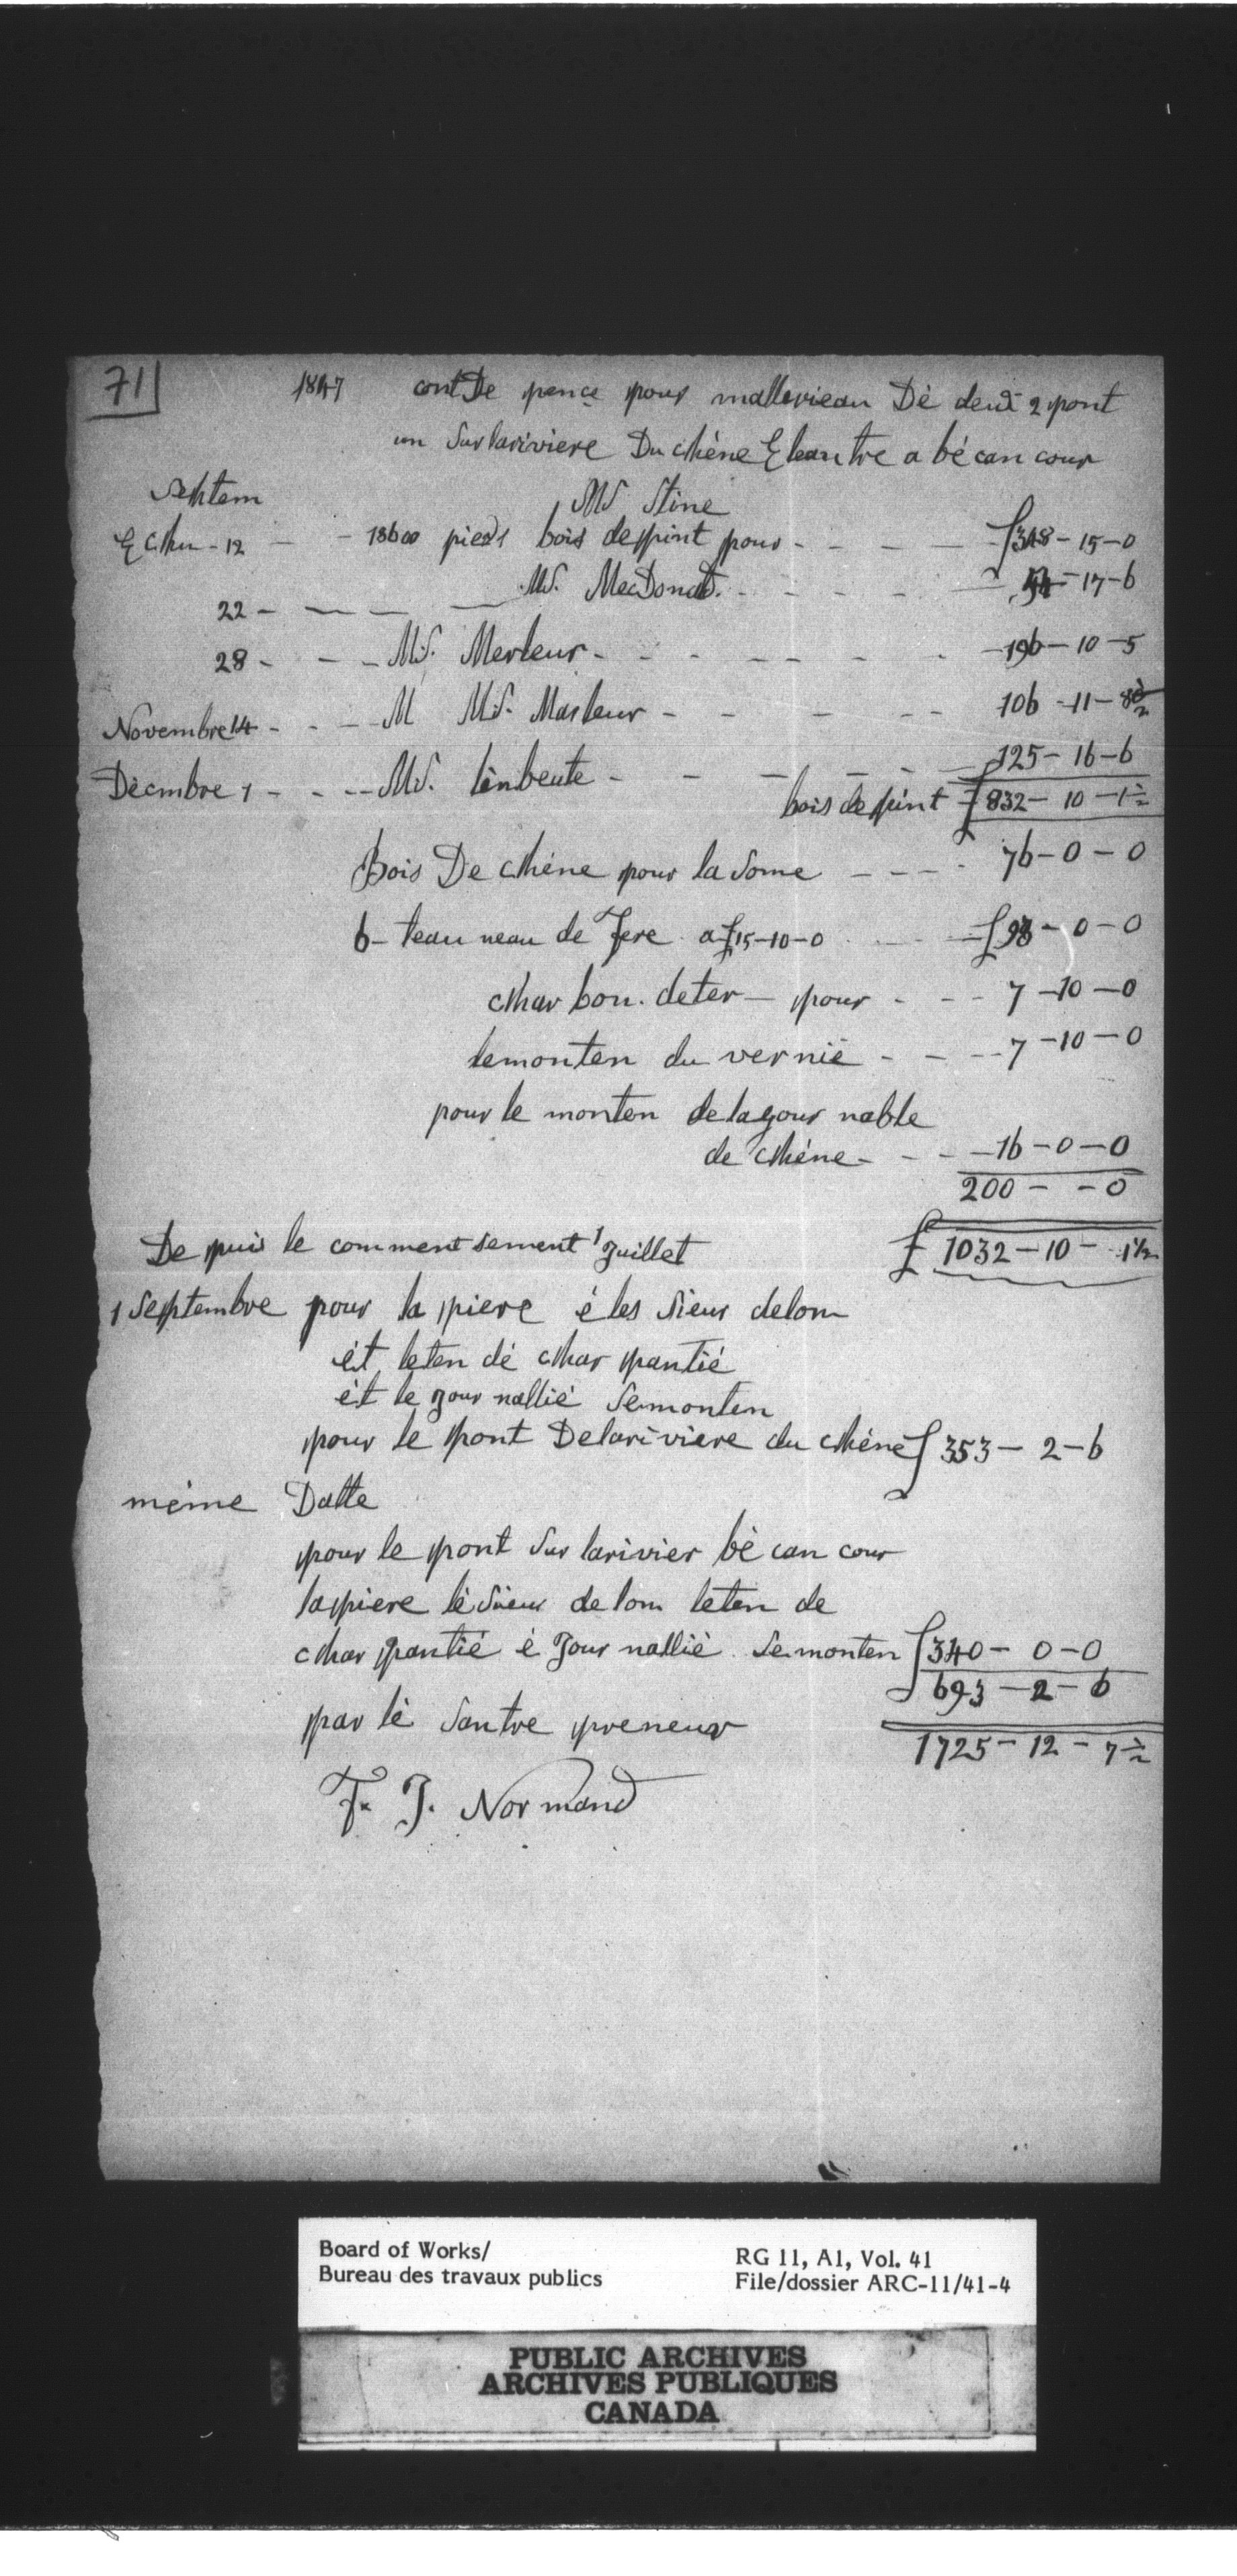 71
1847 cont De pence pour mallerieau Dè deux 2 pont
un Sur lariviere Du chène & leautre a bécancour
Sehtem
Mr Stine
E chu - 12 - - 18600 pieds bois depint pour - - - - £318 - 15 - 0
22 - - - - Mr. MecDonald. - - - - 17 - 6
28 - - - Mr. Merleur - - - - - - - 196 - 10 - 5
Novembre 14 - - - M Mr. Marleur - - - - - 106 - 11 - 8½
Dècmbre 1 - - - Mr. lènbeute - - - - - - 125 - 16 - 6
bois de pint £832 - 10 - 1½
Bois De chène pour la Some - - - - 76 - 0 - 0
6 - teau neau de Fere a £15-10-0 - - £93 - 0 - 0
char bon. deter - pour - - - 7 - 10 - 0
lemonten du vernie - - - - 7 - 10 - 0
pour le monten delagour nable
de chène - - - - 16 - 0 - 0
200 - - 0
De puis le comment sement 1 Juillet £1032 - 10 - 1½
1 Septembre pour la piere é les Sieur delom
ét leten dé char pantié
ét le jour nallié Semonten
pour le pont Delariviere du chène £353 - 2 - 6
mème Datte
pour le pont Sur larivier bé can cour
lapiere lé Sieur de lom leten de
char pantié è Jour nallié Semonten £340 - 0 - 0
693 - 2 - 6
par lè Santre preneur
1725 - 12 - 7½
F. J. Normand
Board of Works/
Bureau des travaux publics
RG 11, A1, Vol. 41
File/dossier ARC-11/41-4
PUBLIC ARCHIVES
ARCHIVES PUBLIQUES
CANADA